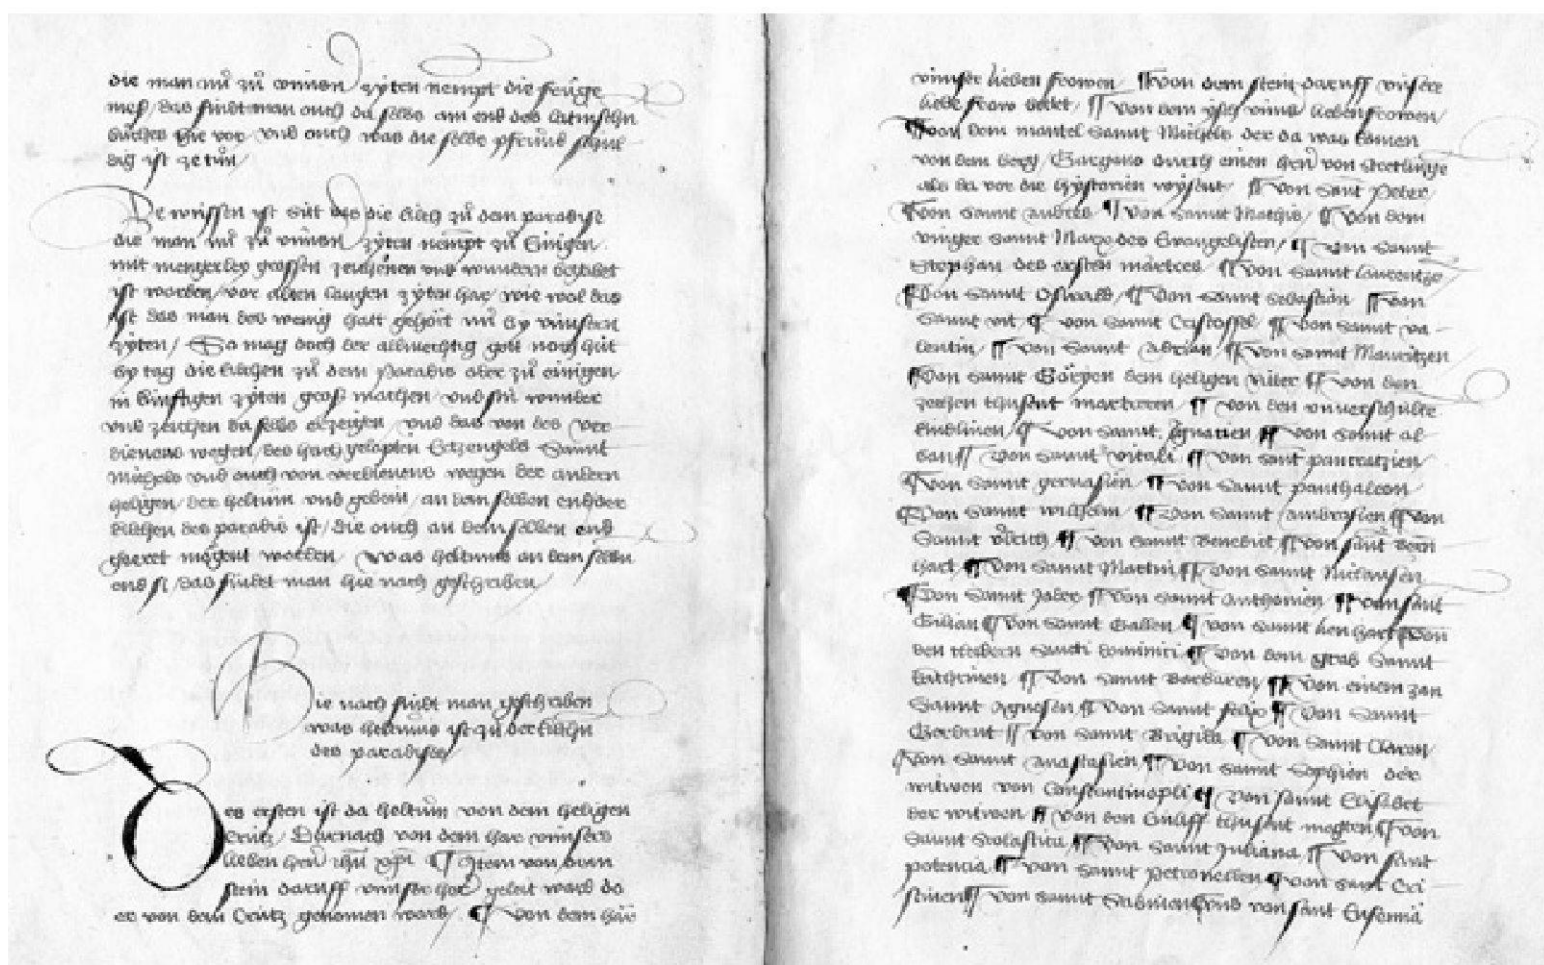 die man nů zů vnnsren zyten nempt die frůge
mesß / das findt man ouch da selbs am end des latinschn
bůches hie vor / vnd ouch was die selbe pfrůnd schul
dig ist ze tůn /
Ze wissen ist hüt das die kilch zů dem paradyse
die man nů zů vnnsren zyten nempt zů Einigen
mit mengerley grossen zeichenen vnd wundern begabet
ist worden / vor alten langen zyten har / wie wol das
ist das man des wenig hatt gehört nů by vnnsern
zyten / So mag doch der allmechtig gott noch hüt
by tag die kilchen zů dem Paradis oder zů einigen
in künfftigen zyten groß machen / vnd sin wunder
vnd zeichen da selbs erzeigen / vnd das von des ver
dienens wegen / des hoch gelopten Ertzengels Sannt
Michels vnd ouch von verdienens wegen der andern
heligen / der heltům vnd gebein / an dem selben end der
kilchen des paradis ist / die ouch an dem selben end
geeret mögent werden / Was heltums an dem selbn
end si / das findt man hie nach geschriben
Hie nach findt man geschriben
was heltums ist zu der kilchn
des paradyses
Des ersten ist da heltům von dem heligen
Crütz / Darnach von dem har vnnsers
lieben herrn ihu xpi ¶ Item von dem
stein daruff vnnser her geleit ward do
er von dem Crütz genomen ward / ¶ Von dem har
vnnser lieben frowen / ¶ Von dem stein daruff vnsere
liebe frow / ¶ Von dem vnns lieben frowen /
¶ Von dem mantel Sannt Michels der da was komen
von dem berg / Gargano durch einen hern von Stretlinge
als da vor die hystorien wysent / ¶ Von Sant Peter /
¶ Von Sannt andres ¶ Von Sannt Mathis / ¶ Von dem
vinger Sannt Marx des Evangelisten / ¶ Von Sannt
Stephan des ersten martres / ¶ Von Sannt laurentze
¶ Von Sannt Oswald / ¶ Von Sannt Sebastion ¶ Von
Sannt vit / ¶ von Sannt Cristoffel / ¶ Von Sannt va
lentin / ¶ von Sannt Adrian / ¶ Von Sannt Mauritzen
¶ Von Sannt Görgen dem heligen ritter ¶ von den
zechen thusent martreren / ¶ Von den vnverschulte
kindlinen / ¶ Von Sannt Ignatien ¶ Von Sannt al
ban ¶ Von Sannt vitali ¶ Von Sant pancratzien
¶ Von Sannt geruasien ¶ Von Sannt panthaleon
¶ Von Sannt wilhelm ¶ Von Sannt Ambrosien ¶ Von
Sannt Ůlrich ¶ Von Sannt Benedict ¶ Von sant Bern
hart ¶ Von Sannt Martin ¶ Von Sannt Niclausen
¶ Von Sannt ¶ Von Sannt Anthonien ¶ Von sant
Gilian ¶ Von Sannt Gallen ¶ Von Sannt lienhart ¶ Von
den kleidern Sancti dominici ¶ Von dem grab Sannt
kathrinen / ¶ Von Sannt Barbaren / ¶ Von einem zan
Sannt Agnesen ¶ Von Sannt felix ¶ Von Sannt
Gerdrut ¶ Von Sannt Brigida ¶ Von Sannt Claren
¶ Von Sannt Anastasien ¶ Von Sannt Sophien der
witwen von Constantinopli ¶ Von sannt Elisabet
der witwen ¶ Von den Einliff thusent megten ¶ Von
Sannt Scolastica ¶ Von Sannt Juliana ¶ Von sant
potencia ¶ Von Sannt Petronellen ¶ Von sant Cri
stinen ¶ Von Sannt Sabinen vnd von sant Eufemia